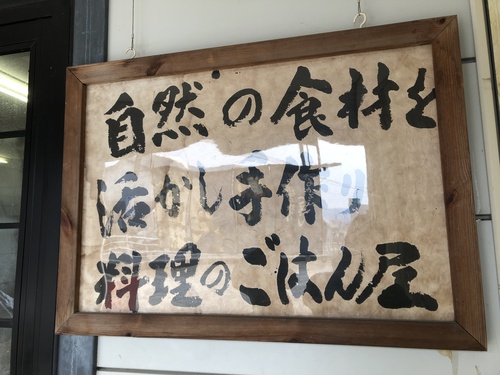 自然の食材を
活かし手作り
料理のごはん屋